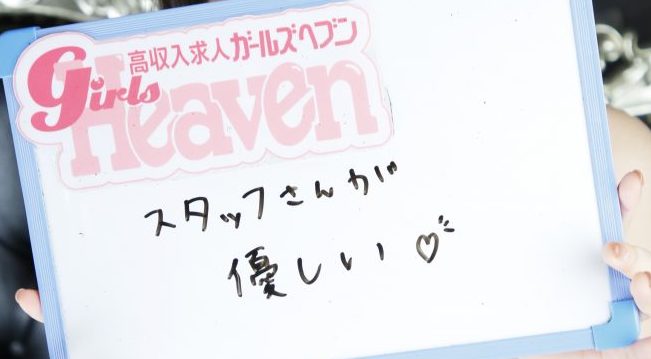 高収入求人ガールズヘブン
Girls Heaven
スタッフさんが
優しい♡